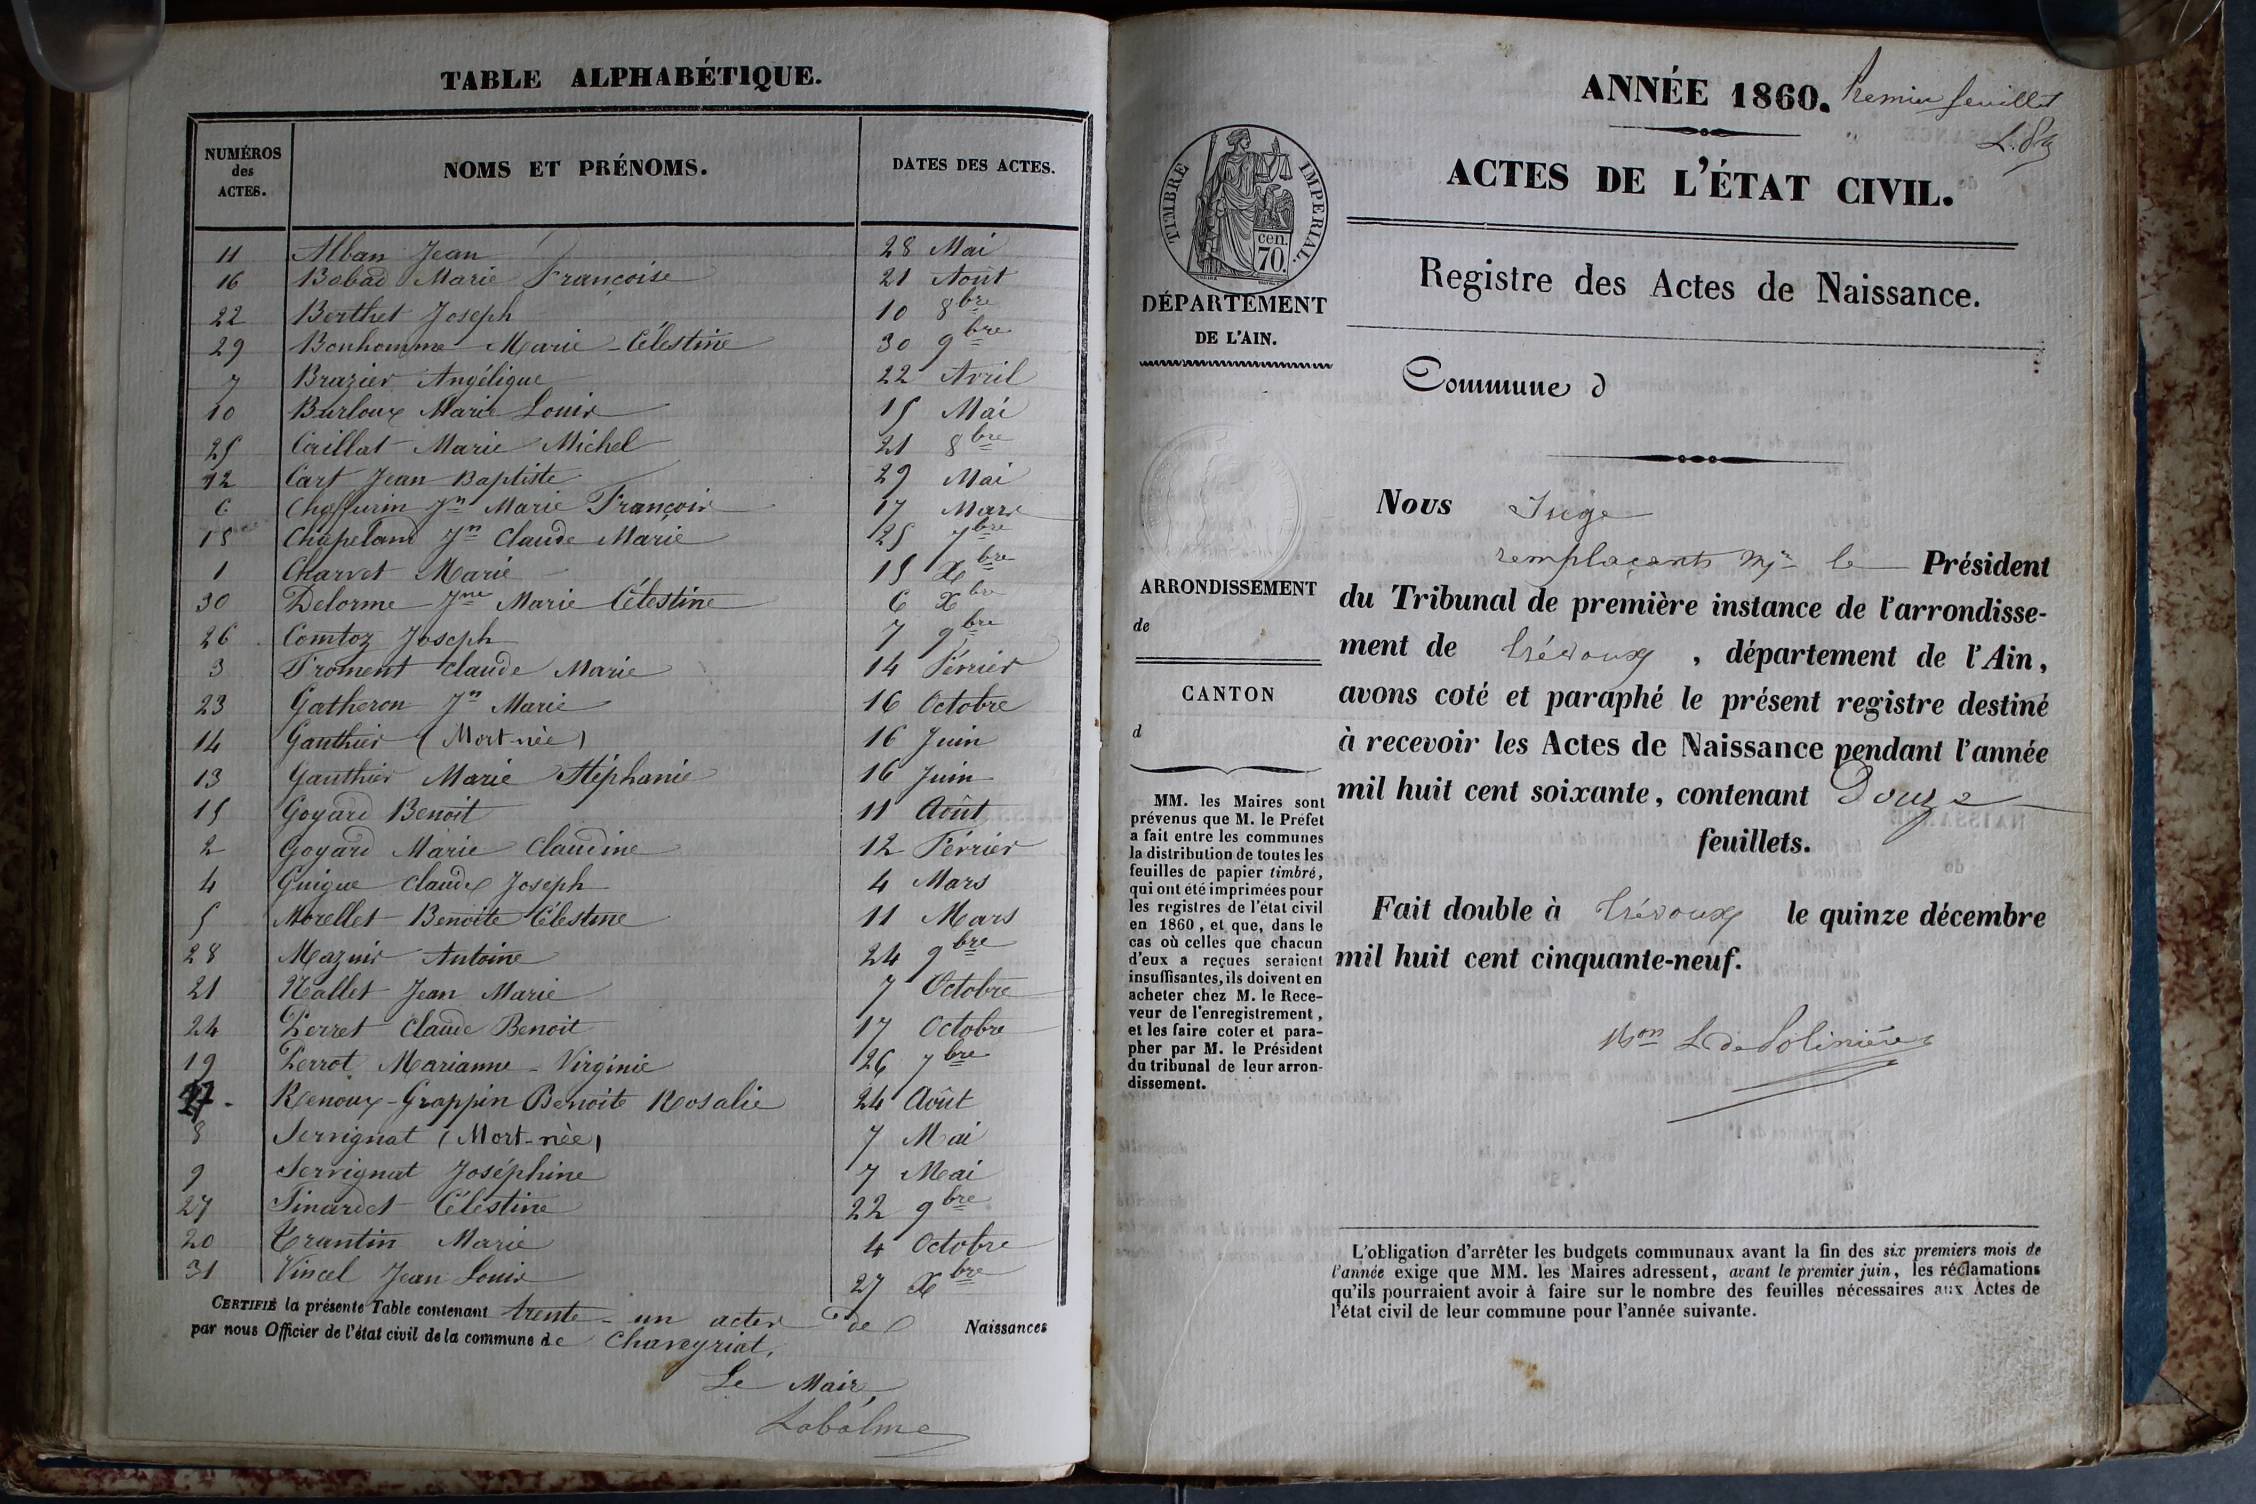 TABLE ALPHABÉTIQUE.
NUMÉROS des ACTES. NOMS ET PRÉNOMS. DATES DES ACTES.
11 Alban Jean 28 Mai
16 Bobad Marie Françoise 21 Aout
22 Berthet Joseph 10 8bre
29 Bonhomme Marie-Célestine 30 9bre
7 Brazier Angélique 22 Avril
10 Burloux Marie Louis 15 Mai
25 Caillat Marie Michel 21 8bre
12 Cart Jean Baptiste 29 Mai
6 Jn Marie François 17 Mars
18 Chapeland Jn Claude Marie 25 7bre
1 Charvet Marie 15 Xbre
30 Delorme Jne Marie Célestine 6 Xbre
26 Comtoz Joseph 7 9bre
3 Froment Claude Marie 14 Février
23 Gatheron Jn Marie 16 Octobre
14 Gauthier (Mort-née) 16 Juin
13 Gauthier Marie Stéphanie 16 Juin
15 Goyard Benoit 11 Août
2 Goyard Marie Claudine 12 Février
4 Guigue Claude Joseph 4 Mars
5 Morellet Benoite Célestine 11 Mars
28 Mazuir Antoine 24 9bre
21 Nallet Jean Marie 7 Octobre
24 Perret Claude Benoit 17 Octobre
19 Perrot Marianne-Virginie 26 7bre
17 Renoux-Grappin Benoite Rosalie 24 Août
8 Servignat (Mort-née) 7 Mai
9 Servignat Joséphine 7 Mai
27 Tinardet Célestine 22 9bre
20 Trantin Marie 4 Octobre
31 Vincel Jean Louis 27 Xbre
CERTIFIÉ la présente Table contenant trente-un actes de Naissances
par nous Officier de l'état civil de la commune de Chaveyriat,
Le Maire,
Labalme
ANNÉE 1860. Premier feuillet
ACTES DE L'ÉTAT CIVIL.
TIMBRE IMPÉRIAL.
cen.
70.
DÉPARTEMENT
DE L'AIN.
Registre des Actes de Naissance.
Commune d
Nous Juge
remplaçant Mr le Président
du Tribunal de première instance de l'arrondisse-
ment de Trévoux, département de l'Ain,
avons coté et paraphé le présent registre destiné
à recevoir les Actes de Naissance pendant l'année
mil huit cent soixante, contenant Douze
feuillets.
Fait double à Trévoux le quinze décembre
mil huit cent cinquante-neuf.
Bon L de Polinière
ARRONDISSEMENT
de
CANTON
d
MM. les Maires sont
prévenus que M. le Préfet
a fait entre les communes
la distribution de toutes les
feuilles de papier timbré,
qui ont été imprimées pour
les registres de l'état civil
en 1860, et que, dans le
cas où celles que chacun
d'eux a reçues seraient
insuffisantes, ils doivent en
acheter chez M. le Rece-
veur de l'enregistrement,
et les faire coter et para-
pher par M. le Président
du tribunal de leur arron-
dissement.
L'obligation d'arrêter les budgets communaux avant la fin des six premiers mois de
l'année exige que MM. les Maires adressent, avant le premier juin, les réclamations
qu'ils pourraient avoir à faire sur le nombre des feuilles nécessaires aux Actes de
l'état civil de leur commune pour l'année suivante.